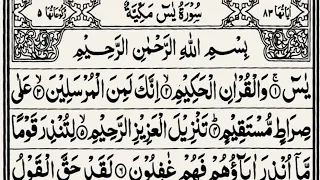 اٰیاتُهَا ٨٣ سُوْرَةُ یٰسٓ مَكِّیَّةٌ رُكُوْعَاتُهَا ٥
بِسْمِ اللّٰهِ الرَّحْمٰنِ الرَّحِیْمِ
یٰسٓ ۝١ وَالْقُرْاٰنِ الْحَكِیْمِ ۝٢ اِنَّكَ لَمِنَ الْمُرْسَلِیْنَ ۝٣ عَلٰی
صِرَاطٍ مُّسْتَقِیْمٍ ۝٤ تَنْزِیْلَ الْعَزِیْزِ الرَّحِیْمِ ۝٥ لِتُنْذِرَ قَوْمًا
مَّاۤ اُنْذِرَ اٰبَآؤُهُمْ فَهُمْ غٰفِلُوْنَ ۝٦ لَقَدْ حَقَّ الْقَوْلُ